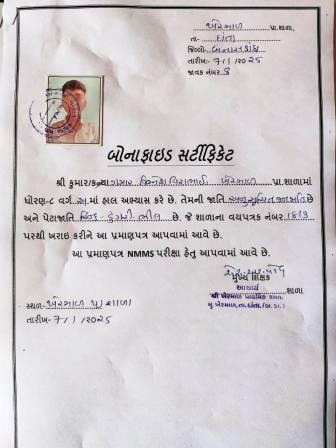 ખેરમાળ પ્રા.શાળા,
તા- દાંતા
જિલ્લો- બનાસકાંઠા
તારીખ- 7/1/2025
જાવક નંબર 8
બોનાફાઇડ સર્ટીફિકેટ
શ્રી કુમાર/કન્યા ખેરમાળ પ્રા.શાળામાં
ધોરણ-૮ વર્ગ અ.માં હાલ અભ્યાસ કરે છે. તેમની જાતિ અનુસૂચિત જનજાતિ છે
અને પેટાજાતિ હિન્દુ-ડુંગરી ભીલ છે. જે શાળાના વયપત્રક નંબર 1813
પરથી ખરાઇ કરીને આ પ્રમાણપત્ર આપવામાં આવે છે.
આ પ્રમાણપત્ર NMMS પરીક્ષા હેતુ આપવામાં આવે છે.
મુખ્ય શિક્ષક
આચાર્ય
શાળા
શ્રી ખેરમાળ પ્રાથમિક શાળા
મુ. ખેરમાળ, તા. દાંતા, (બ.કાં.)
સ્થળ- ખેરમાળ પ્રા શાળા
તારીખ- 7/1/2025